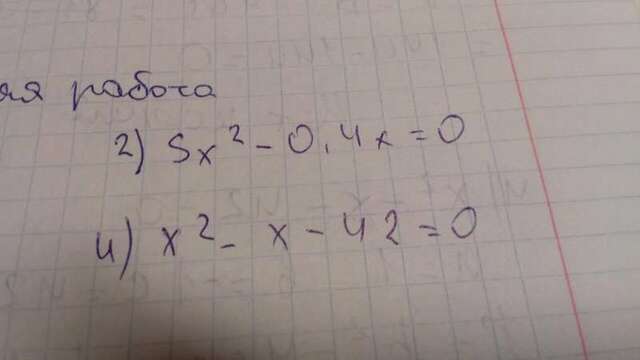 яя работа
2) 5x² - 0,4x = 0
4) x² - x - 42 = 0